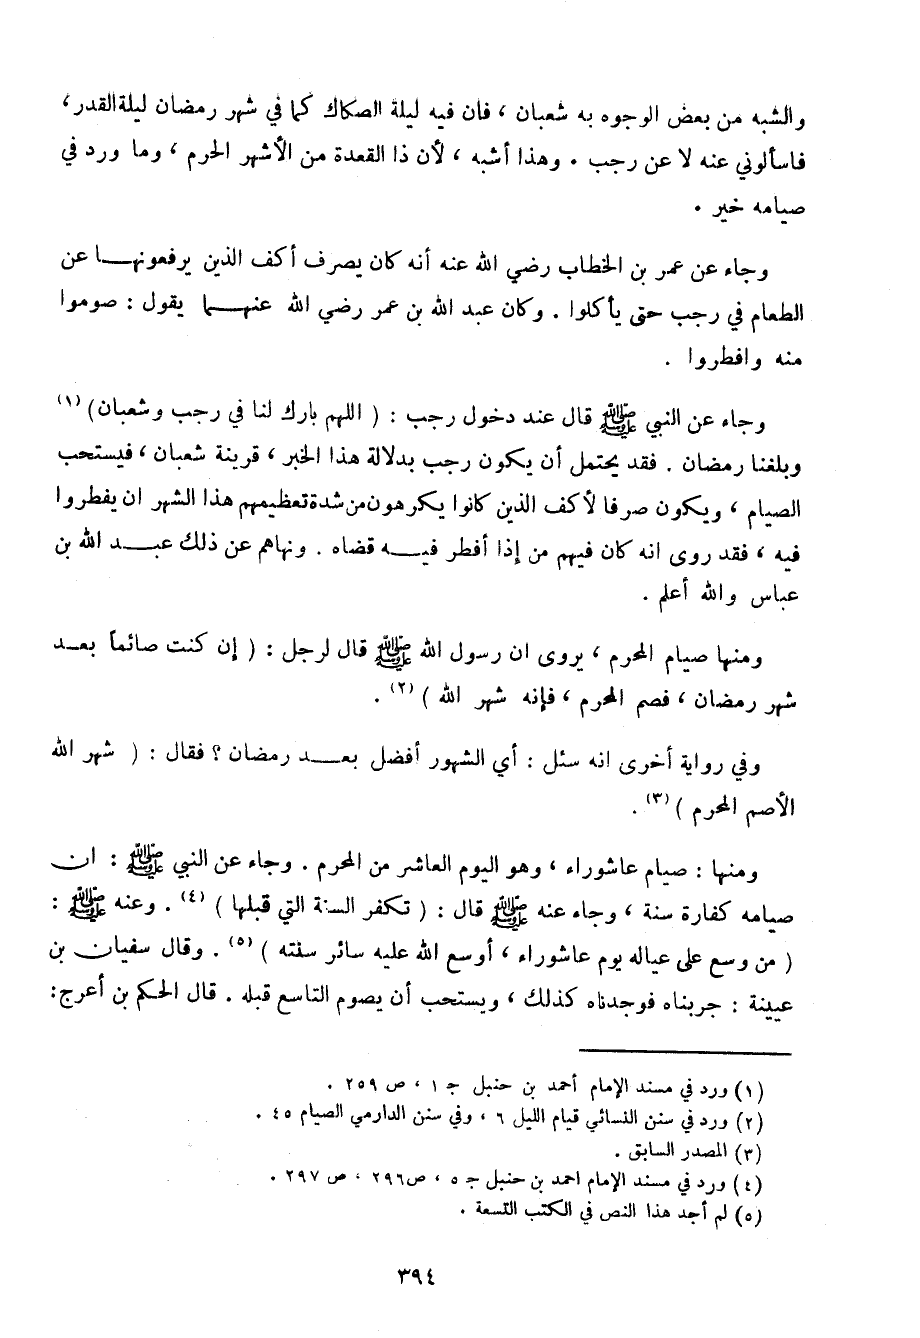 والشبه من بعض الوجوه به شعبان ، فان فيه ليلة الصكاك كما في شهر رمضان ليلة القدر ،
فاسألوني عنه لا عن رجب . وهذا أشبه ، لأن ذا القعدة من الأشهر الحرم ، وما ورد في
صيامه خبر .
وجاء عن عمر بن الخطاب رضي الله عنه أنه كان يصرف أكف الذين يرفعونها عن
الطعام في رجب حتى يأكلوا . وكان عبد الله بن عمر رضي الله عنهما يقول : صوموا
منه وافطروا .
وجاء عن النبي ﷺ قال عند دخول رجب : ( اللهم بارك لنا في رجب وشعبان) (١)
وبلغنا رمضان . فقد يحتمل أن يكون رجب بدلالة هذا الخبر ، قرينة شعبان ، فيستحب
الصيام ، ويكون صرفا لأكف الذين كانوا يكرهون من شدة تعظيمهم هذا الشهر ان يفطروا
فيه ، فقد روى انه كان فيهم من إذا أفطر فيه قضاه . ونهاهم عن ذلك عبد الله بن
عباس والله أعلم .
ومنها صيام المحرم ، يروى ان رسول الله ﷺ قال لرجل : ( إن كنت صائماً بعد
شهر رمضان ، فصم المحرم ، فإنه شهر الله ) (٢) .
وفي رواية أخرى انه سئل : أي الشهور أفضل بعد رمضان ؟ فقال : ( شهر الله
الأصم المحرم ) (٣) .
ومنها : صيام عاشوراء ، وهو اليوم العاشر من المحرم . وجاء عن النبي ﷺ : ان
صيامه كفارة سنة ، وجاء عنه ﷺ قال : ( تكفر السنة التي قبلها ) (٤) . وعنه ﷺ :
( من وسع على عياله يوم عاشوراء ، أوسع الله عليه سائر سنته ) (٥) . وقال سفيان بن
عيينة : جربناه فوجدناه كذلك ، ويستحب أن يصوم التاسع قبله . قال الحكم بن أعرج :
(١) ورد في مسند الإمام أحمد بن حنبل جـ ١ ، ص ٢٥٩ .
(٢) ورد في سنن النسائي قيام الليل ٦ ، وفي سنن الدارمي الصيام ٤٥ .
(٣) المصدر السابق .
(٤) ورد في مسند الإمام احمد بن حنبل جـ ٥ ، ص٢٩٦ ، ص ٢٩٧ .
(٥) لم أجد هذا النص في الكتب التسعة .
٣٩٤